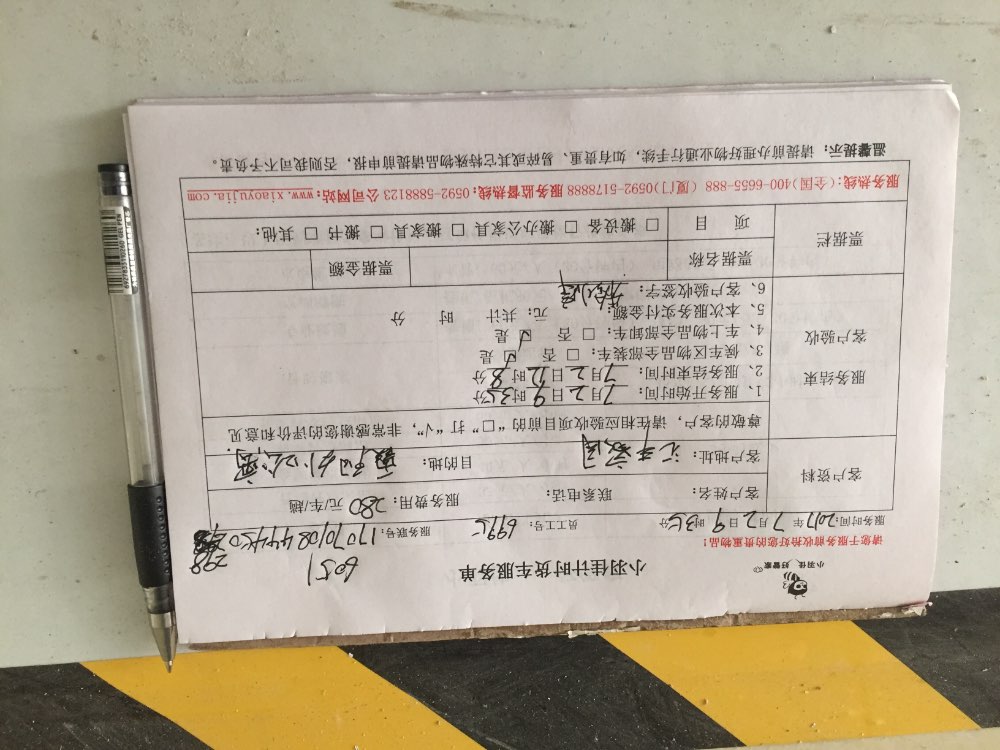 小羽佳 好管家
小羽佳计时货车服务单
6051
298
请您于服务前收拾好您的贵重物品！
服务时间：2017年7月2日9时35分 员工工号：6995 服务联号：
客户资料
客户姓名： 联系电话： 服务费用：280元/车/趟
客户地址： 目的地：
尊敬的客户，请在相应验收项目前的“□”打“√”，非常感谢您的评价和意见
服务结束
客户验收
1、服务开始时间：7月2日9时35分
2、服务结束时间：7月2日12时8分
3、候车区物品全部装车：□ 否 ☑ 是
4、车上物品全部卸车：□ 否 ☑ 是
5、本次服务实付金额： 元；共计 时 分
6、客户验收签字：
票据栏
票据名称 票据金额
项 目 □ 搬设备 □ 搬办公家具 □ 搬家具 □ 搬书 □ 其他：
服务热线：(全国)400-6655-888 (厦门)0592-5178888 服务监督热线：0592-5888123 公司网站：www.xiaoyujia.com
温馨提示：请提前办理好物业通行手续，如有贵重、易碎或其它特殊物品请提前申报，否则我司不予负责。